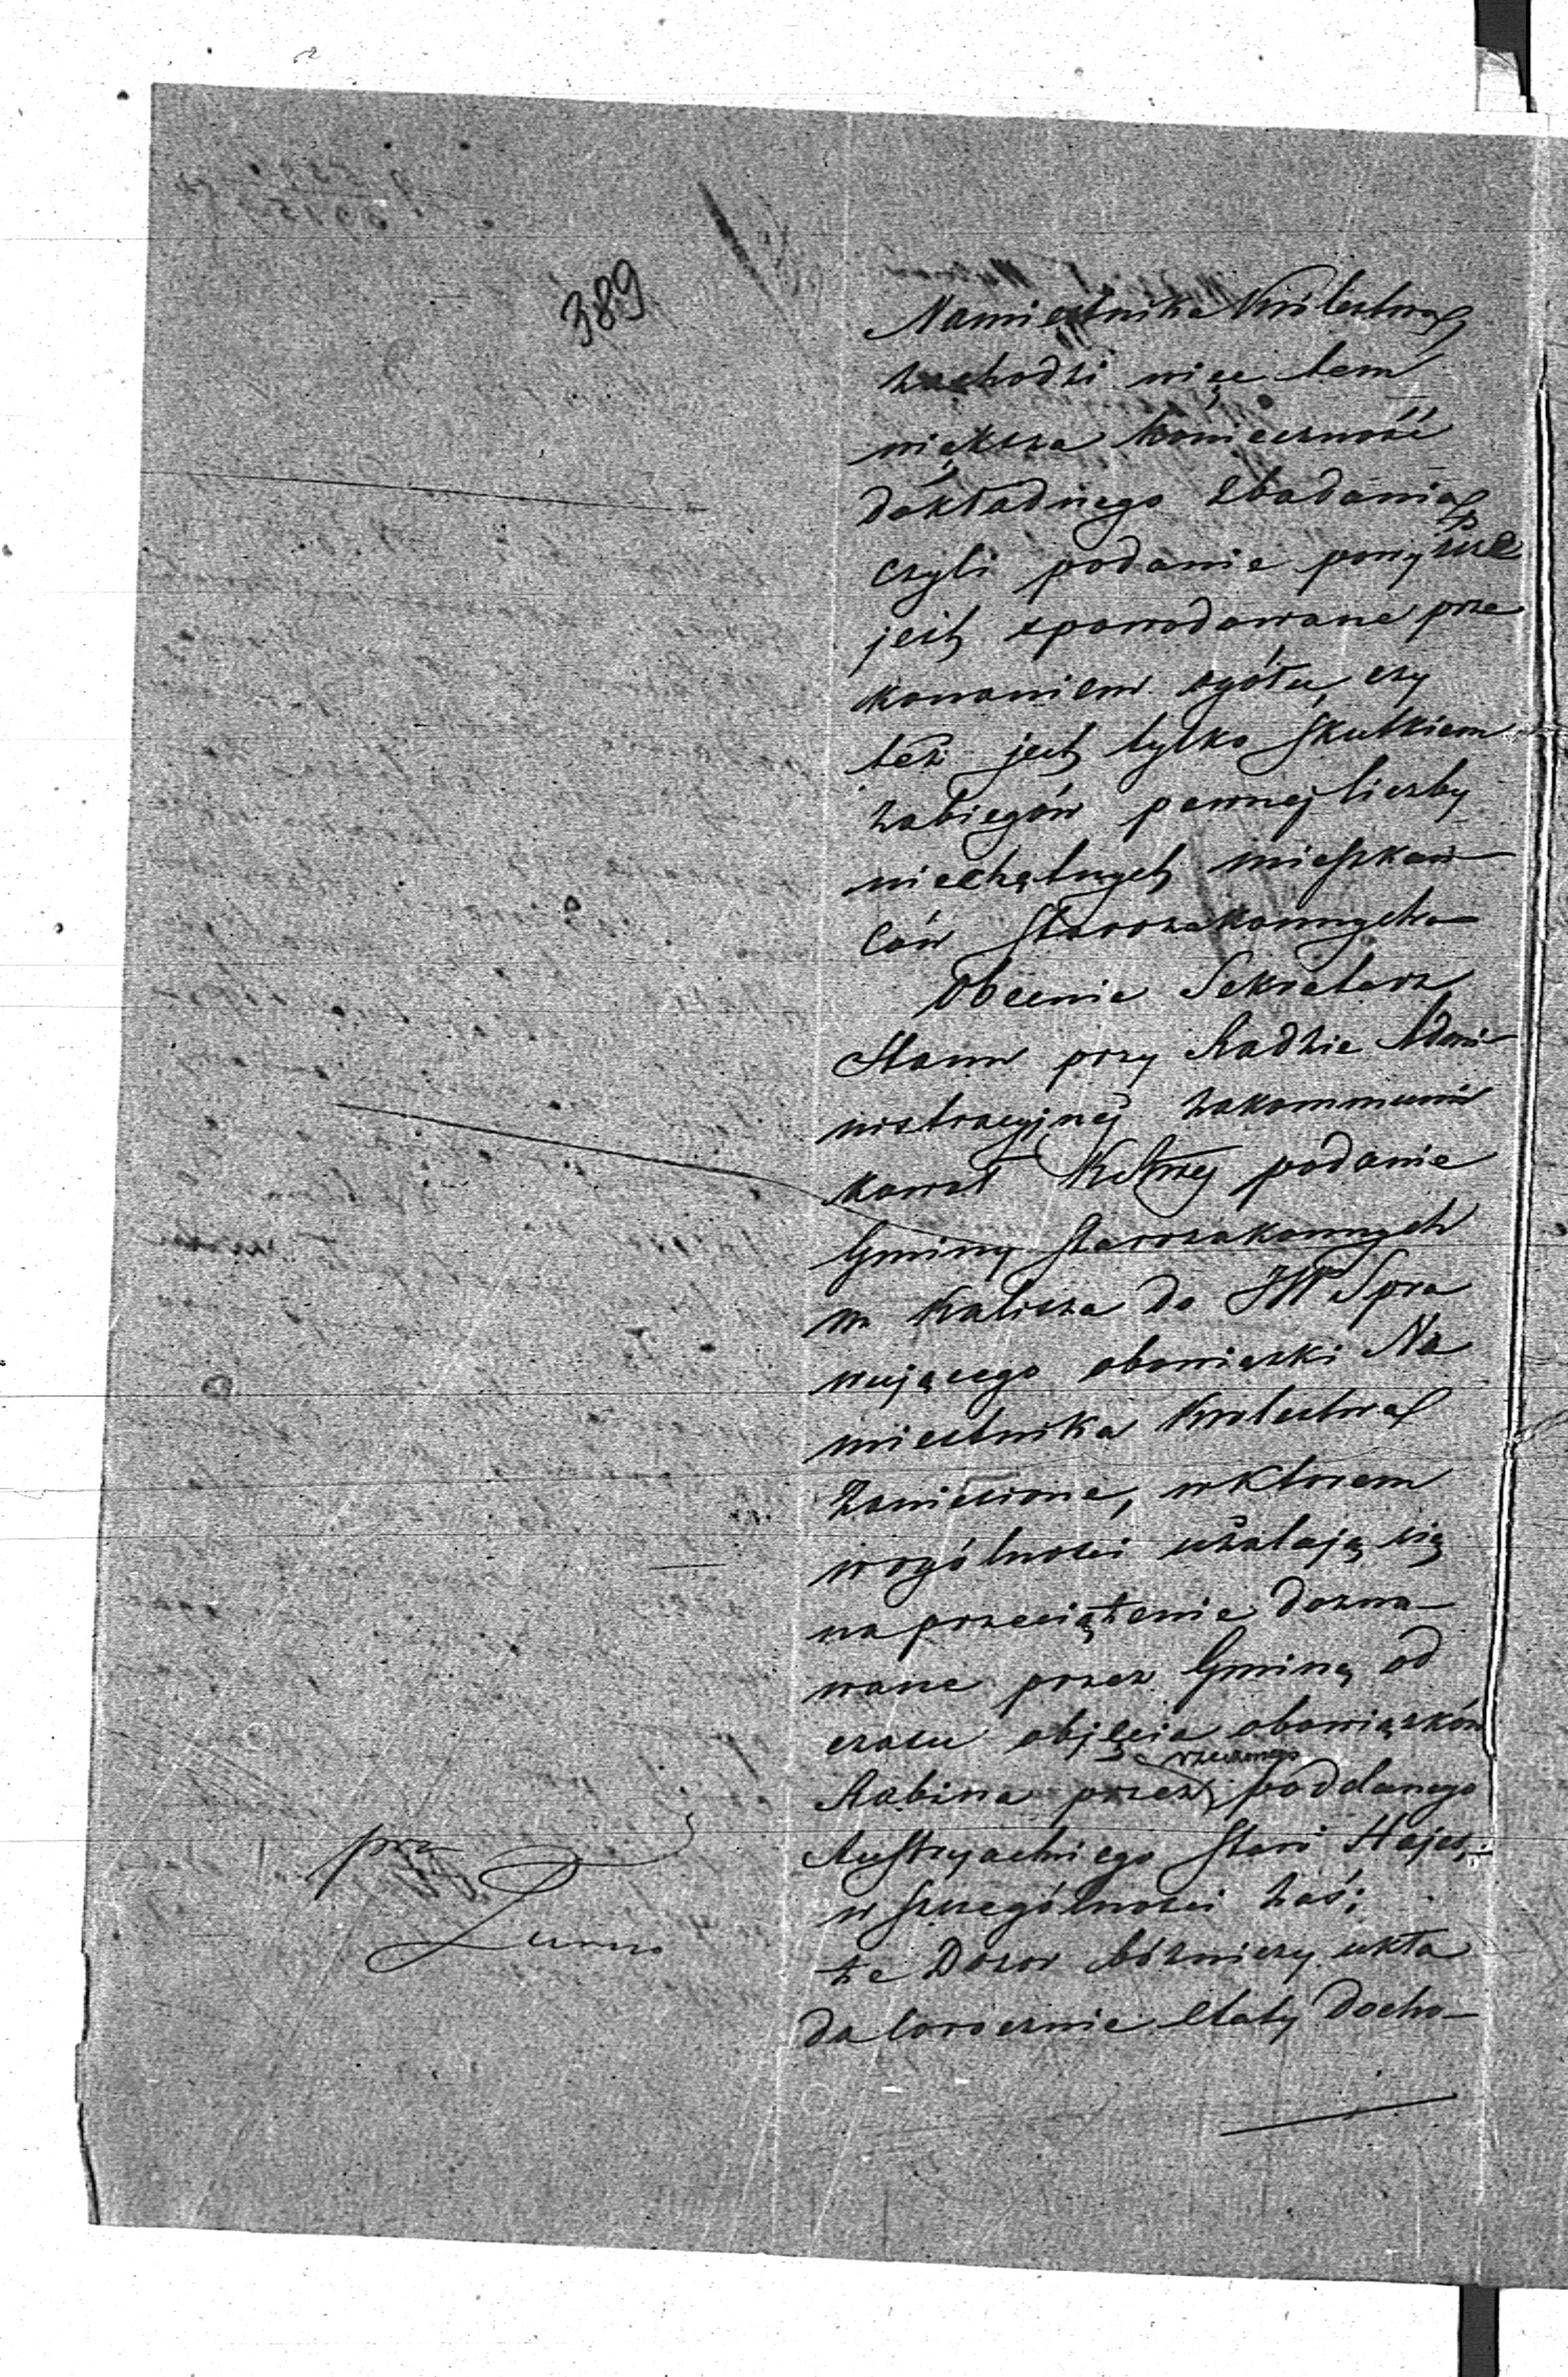 389
Namiestnika Królestwa,
zachodzi więc tem
większa konieczność
dokładnego zbadania
czyli podanie powyższe
jest spowodowane prze
konaniem ogółu, czy
też jest tylko skutkiem
zabiegów pewnej liczby
niechętnych mieszkań-
ców Starozakonnych
Obecnie Sekretarz
Stanu przy Radzie Admi-
nistracyjnej zakommuni
kował podanie
Gminy Starozakonnych
m Kalisza do JW Spra
wującego obowiązki Na
miestnika Krolestwa
Zaniesione, w ktorem
w ogólności użalają się
na przeciążenie dozna-
wane przez Gminę od
czasu objęcia obowiązków
Rabina przez rzeczonego poddanego
Austryackiego
w szczególności zaś:
że Dozor bóżniczy ukła
da corocznie etaty docho-